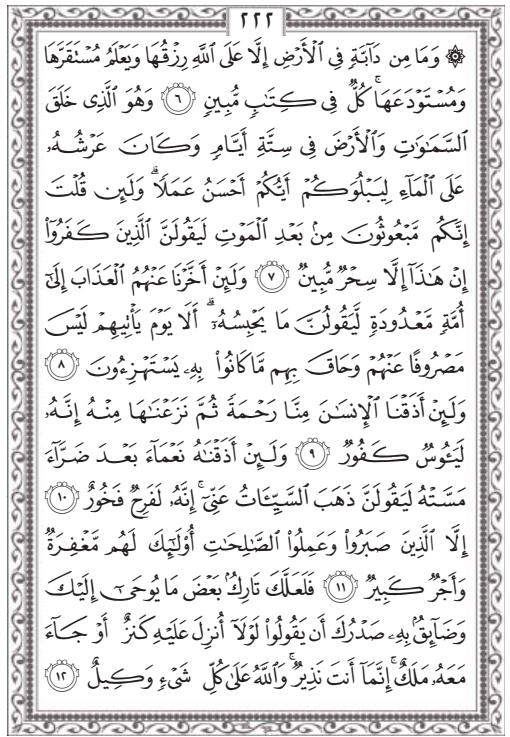 ٢٢٢
۞ وَمَا مِن دَآبَّةٍ فِي ٱلْأَرْضِ إِلَّا عَلَى ٱللَّهِ رِزْقُهَا وَيَعْلَمُ مُسْتَقَرَّهَا
وَمُسْتَوْدَعَهَاۚ كُلٌّ فِي كِتَٰبٍ مُّبِينٍ ٦ وَهُوَ ٱلَّذِي خَلَقَ
ٱلسَّمَٰوَٰتِ وَٱلْأَرْضَ فِي سِتَّةِ أَيَّامٍ وَكَانَ عَرْشُهُۥ
عَلَى ٱلْمَآءِ لِيَبْلُوَكُمْ أَيُّكُمْ أَحْسَنُ عَمَلًاۗ وَلَئِن قُلْتَ
إِنَّكُم مَّبْعُوثُونَ مِنۢ بَعْدِ ٱلْمَوْتِ لَيَقُولَنَّ ٱلَّذِينَ كَفَرُوٓا۟
إِنْ هَٰذَآ إِلَّا سِحْرٌ مُّبِينٌ ٧ وَلَئِنْ أَخَّرْنَا عَنْهُمُ ٱلْعَذَابَ إِلَىٰٓ
أُمَّةٍ مَّعْدُودَةٍ لَّيَقُولُنَّ مَا يَحْبِسُهُۥٓۗ أَلَا يَوْمَ يَأْتِيهِمْ لَيْسَ
مَصْرُوفًا عَنْهُمْ وَحَاقَ بِهِم مَّا كَانُوا۟ بِهِۦ يَسْتَهْزِءُونَ ٨
وَلَئِنْ أَذَقْنَا ٱلْإِنسَٰنَ مِنَّا رَحْمَةً ثُمَّ نَزَعْنَٰهَا مِنْهُ إِنَّهُۥ
لَيَـُٔوسٌ كَفُورٌ ٩ وَلَئِنْ أَذَقْنَٰهُ نَعْمَآءَ بَعْدَ ضَرَّآءَ
مَسَّتْهُ لَيَقُولَنَّ ذَهَبَ ٱلسَّيِّـَٔاتُ عَنِّيٓۚ إِنَّهُۥ لَفَرِحٌ فَخُورٌ ١٠
إِلَّا ٱلَّذِينَ صَبَرُوا۟ وَعَمِلُوا۟ ٱلصَّٰلِحَٰتِ أُو۟لَٰٓئِكَ لَهُم مَّغْفِرَةٌ
وَأَجْرٌ كَبِيرٌ ١١ فَلَعَلَّكَ تَارِكٌۢ بَعْضَ مَا يُوحَىٰٓ إِلَيْكَ
وَضَآئِقٌۢ بِهِۦ صَدْرُكَ أَن يَقُولُوا۟ لَوْلَآ أُنزِلَ عَلَيْهِ كَنزٌ أَوْ جَآءَ
مَعَهُۥ مَلَكٌۚ إِنَّمَآ أَنتَ نَذِيرٌۚ وَٱللَّهُ عَلَىٰ كُلِّ شَيْءٍ وَكِيلٌ ١٢